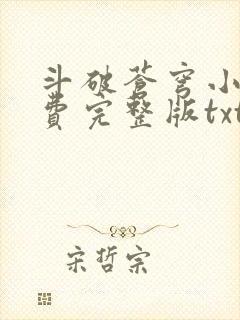 斗破苍穹小
费完整版txt
宋哲宗